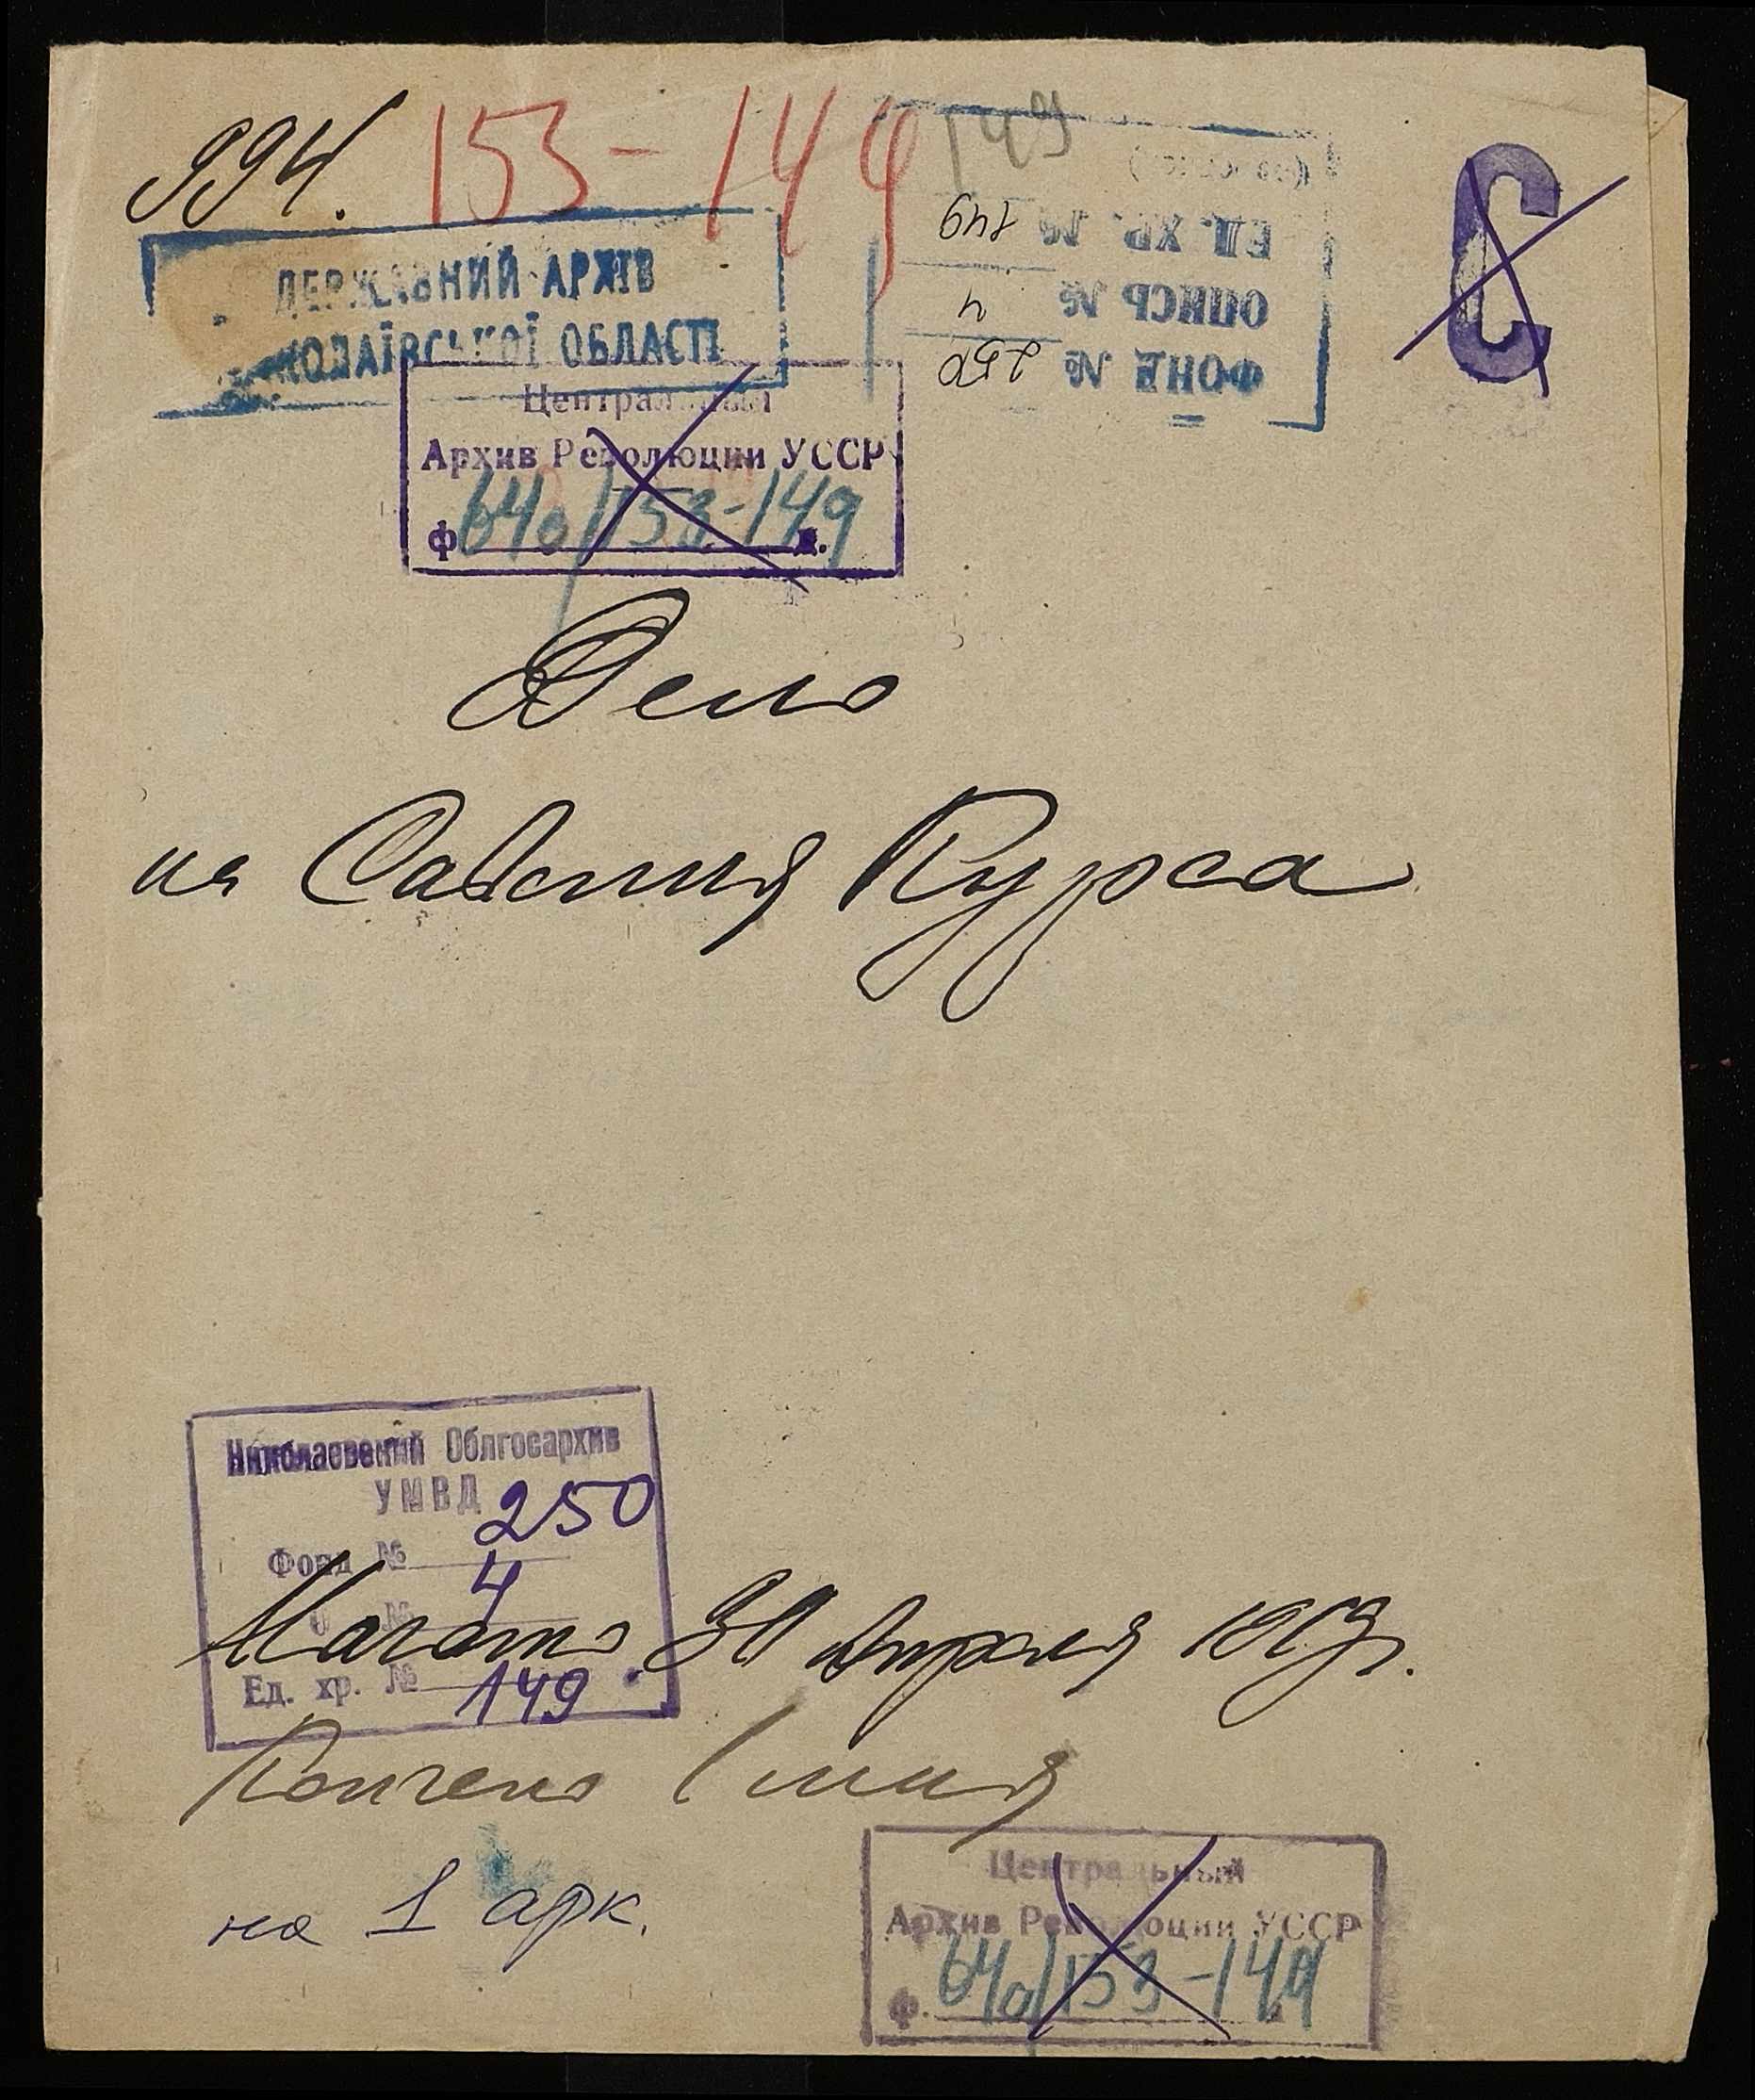 994.
153-149
149
ДЕРЖАВНИЙ АРХІВ
МИКОЛАЇВСЬКОЇ ОБЛАСТІ
ФОНД № 250
ОПИСЬ № 4
ЕД. ХР. № 149
С
Центральный
Архив Революции УССР
Ф 64о/153-149
Дело
на Савелия Курса
Николаевский Облгосархив
УМВД
Фонд № 250
№ 4
Ед. хр. № 149
Начато 30 Апреля
Кончено
на 1 арк.
Центральный
Архив Революции УССР
Ф. 64о/153-149